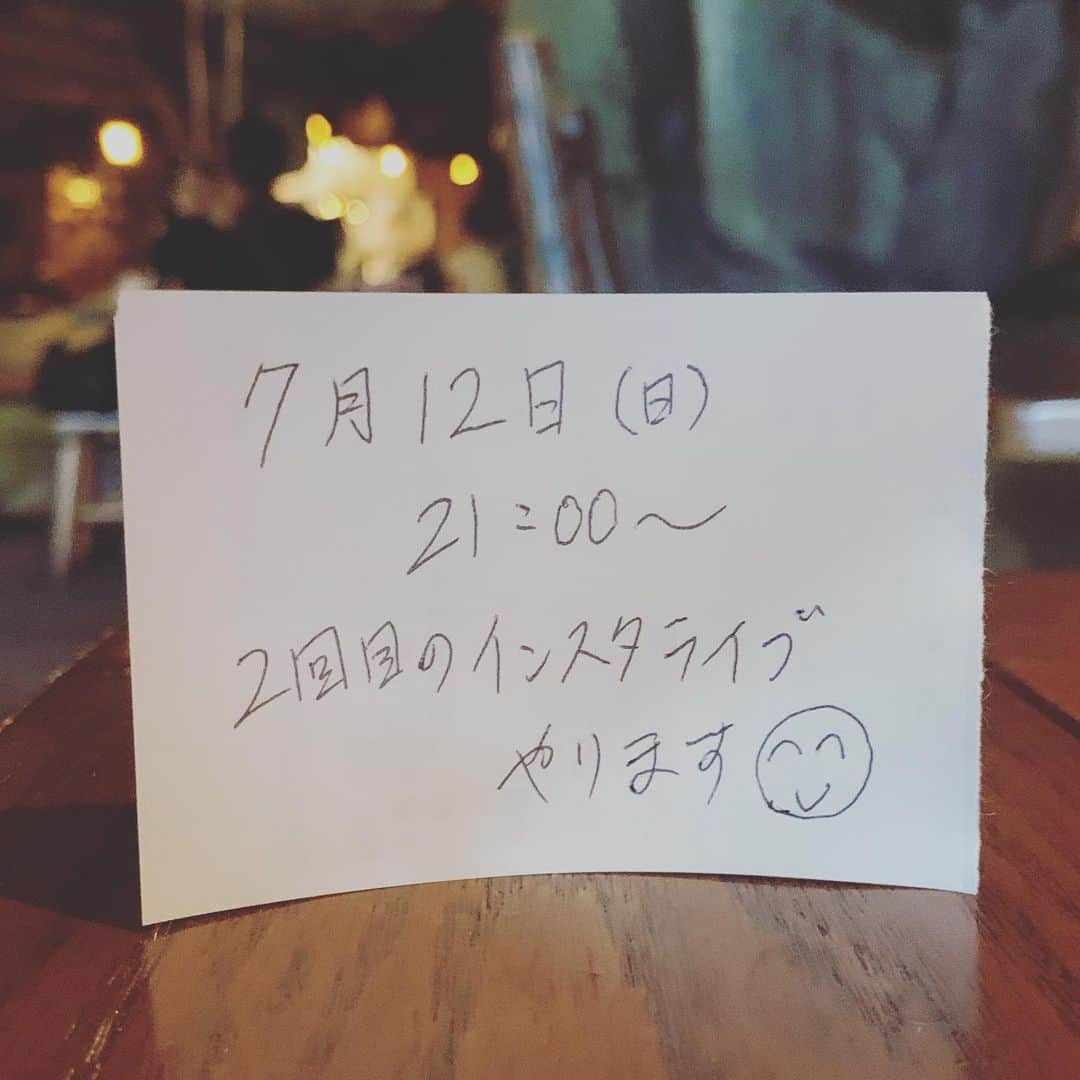 7月12日(日)
21:00〜
2回目のインスタライブ
やります